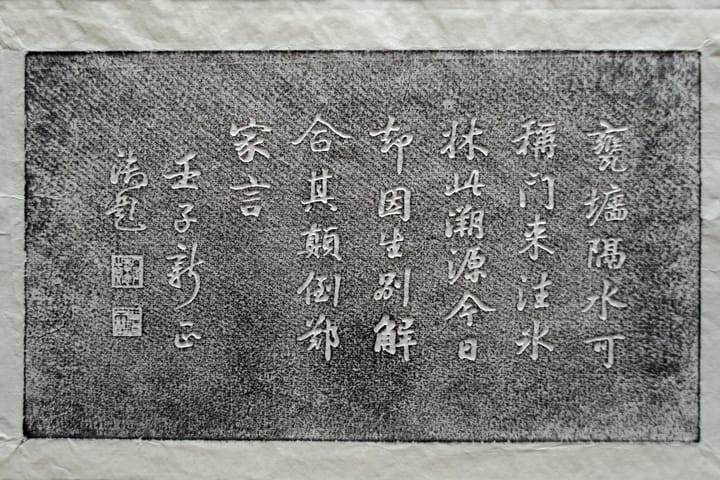 甕墉隔水可
稱门来注氷
牀此溯源今日
却因生别解
合其顛倒鄭
家言
壬子新正
御題